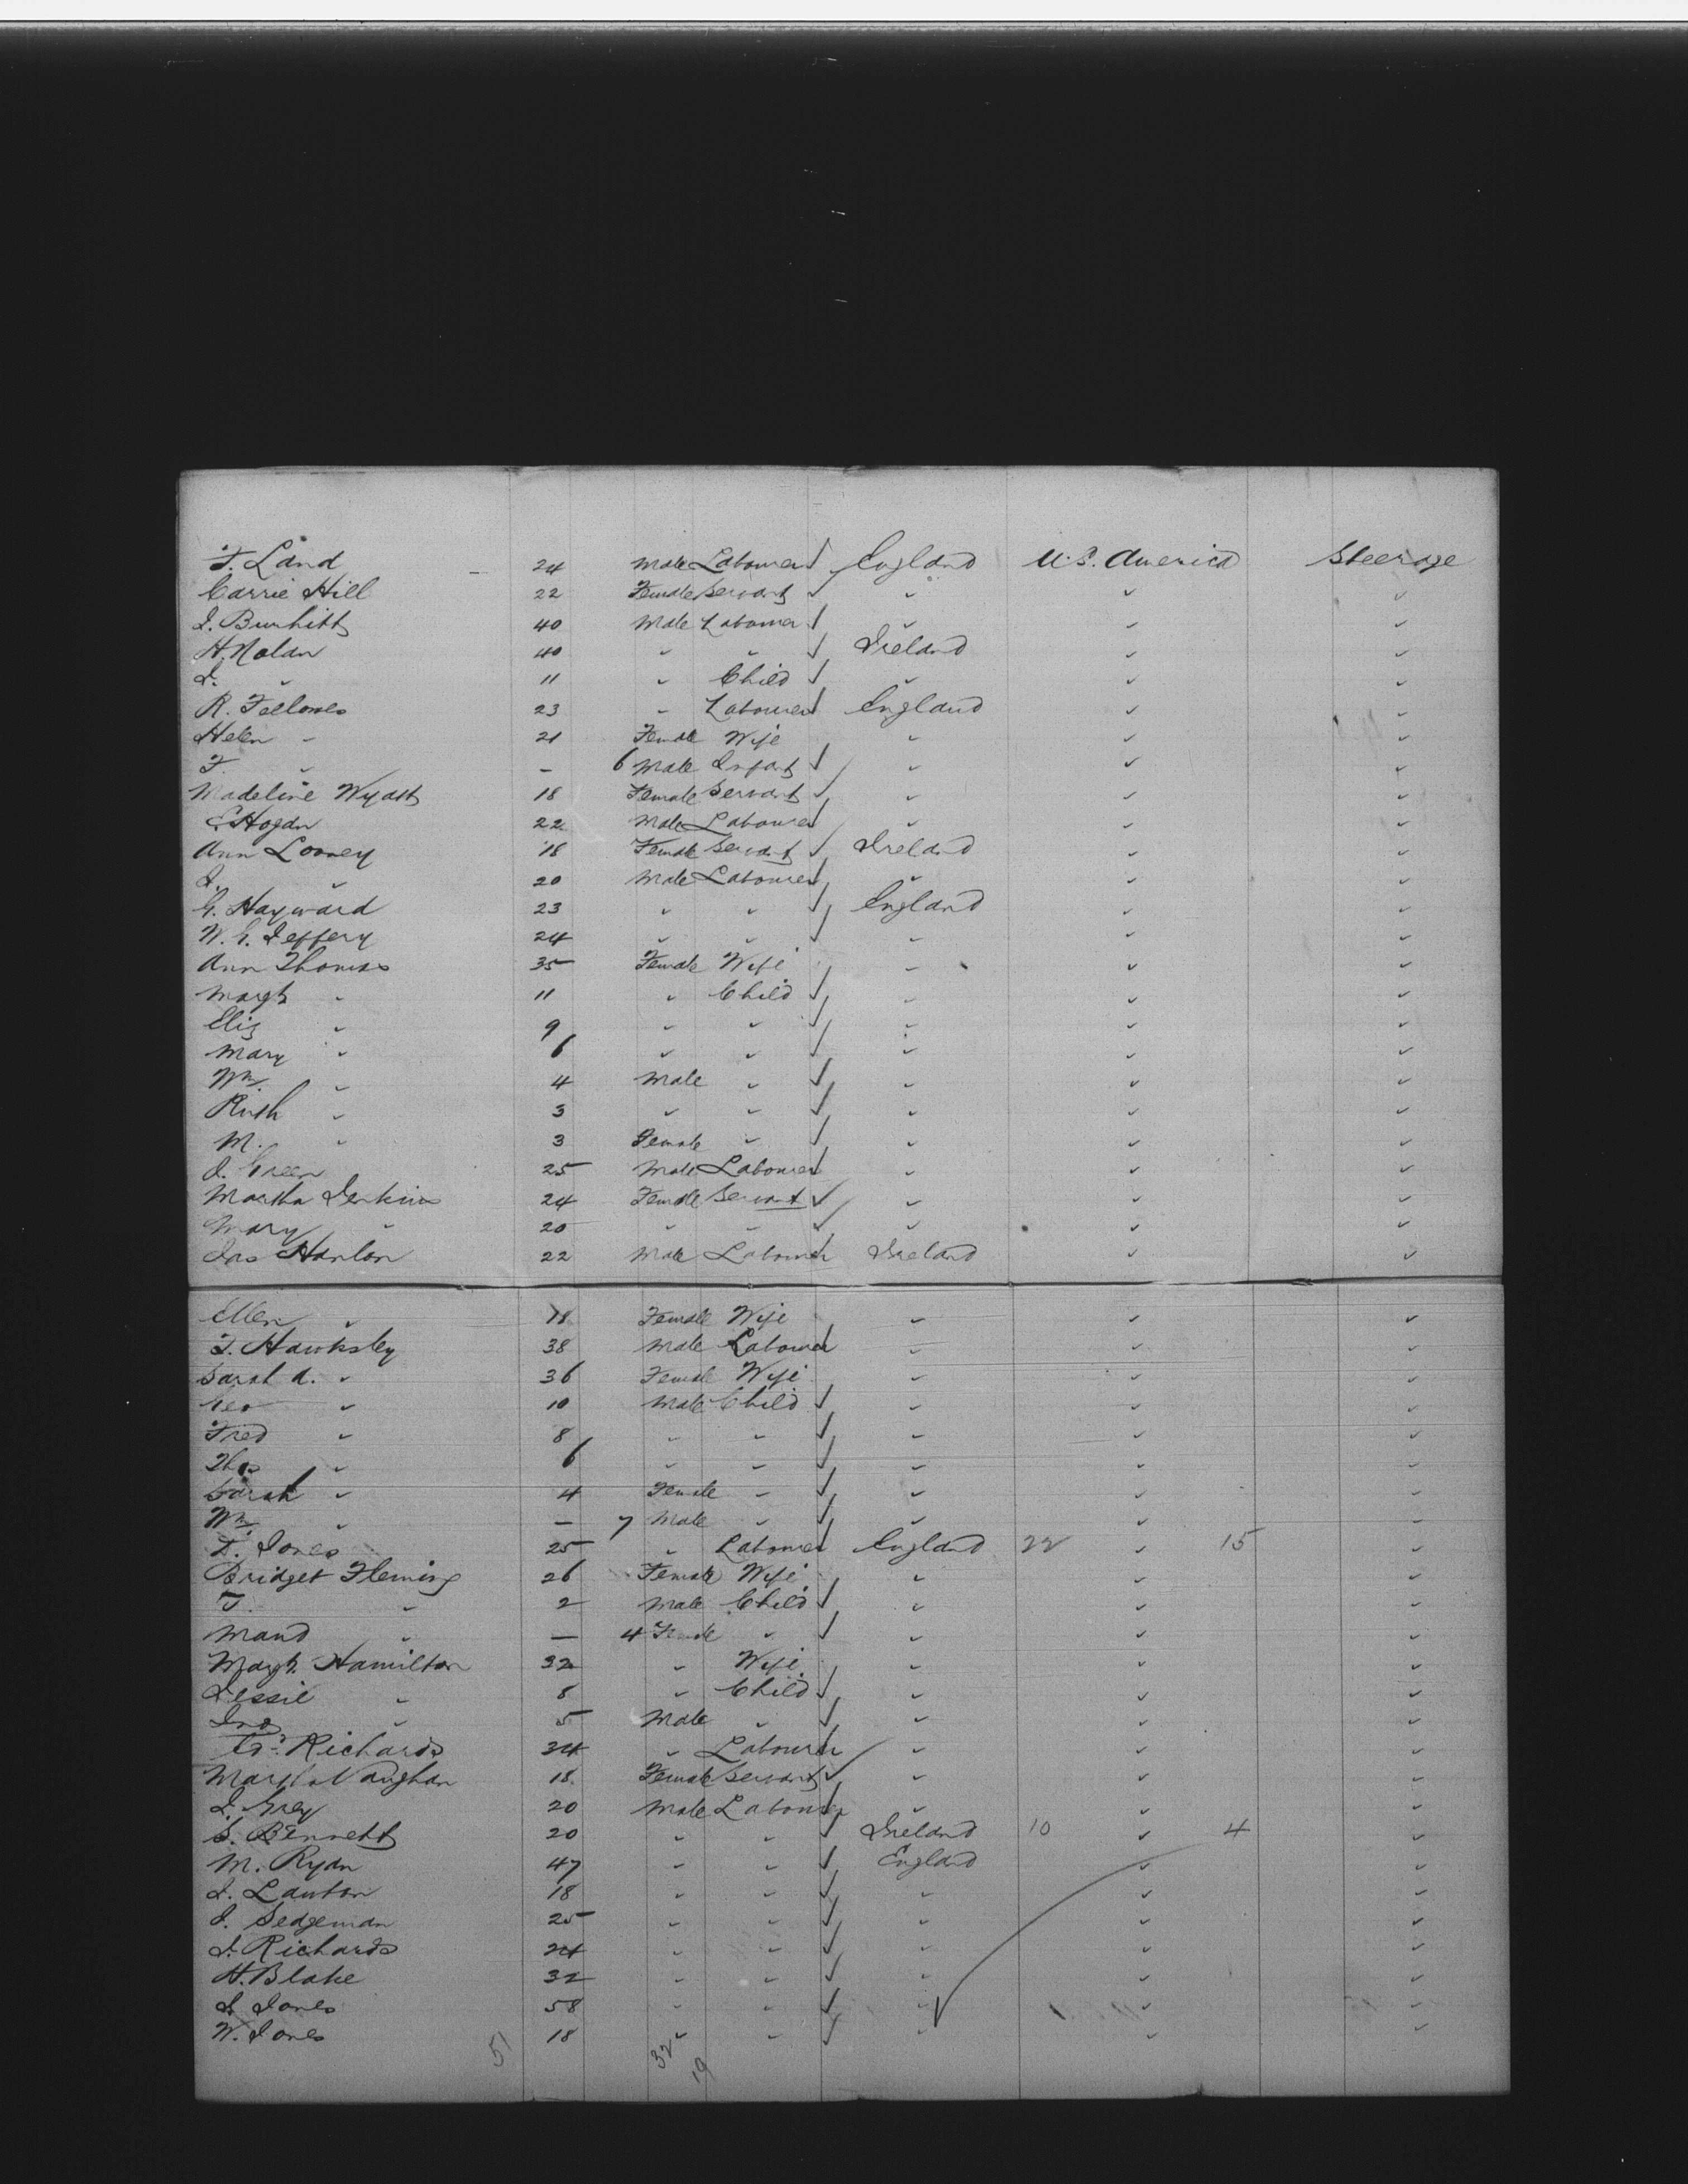 T. Land 24 Male Labourer England U.S. America Steerage
Carrie Hill 22 Female Servant " " "
J. Burkitt 40 Male Labourer " " "
H. Nolan 40 " " Ireland " "
J. " 11 " Child " " "
R. Fellowes 23 " Labourer England " "
Helen " 21 Female Wife " " "
F. " — 6 Male Infant " " "
Madeline Wyatt 18 Female Servant " " "
E. Hogan 22 Male Labourer " " "
Ann Looney 18 Female Servant Ireland " "
J. " 20 Male Labourer " " "
G. Hayward 23 " " England " "
W. G. Jeffery 24 " " " " "
Ann Thomas 35 Female Wife " " "
Margt " 11 " Child " " "
Eliz " 9 " " " " "
Mary " 6 " " " " "
Wm. " 4 Male " " " "
Rich " 3 " " " " "
M. " 3 Female " " " "
J. Green 25 Male Labourer " " "
Martha Jenkins 24 Female Servant " " "
Mary " 20 " " " " "
Jas Hanlon 22 Male Labourer Ireland " "
Ellen " 18 Female Wife " " "
T. Hawksley 38 Male Labourer " " "
Sarah A. " 36 Female Wife " " "
Geo " 10 Male Child " " "
Fred " 8 " " " " "
Thos " 6 " " " " "
Sarah " 4 Female " " " "
Wm. " — 7 Male " " " "
T. Jones 25 " Labourer England 22 " 15 "
Bridget Fleming 26 Female Wife " " "
T. " 2 Male Child " " "
Maud " — 4 Female " " " "
Margt. Hamilton 32 " Wife " " "
Jessie " 8 " Child " " "
Jno " 5 Male " " " "
Ed. Richards 34 " Labourer " " "
Martha Vaughan 18 Female Servant " " "
J. Grey 20 Male Labourer " " "
S. Bennett 20 " " Ireland 10 " 4 "
M. Ryan 47 " " England " "
J. Lawton 18 " " " " "
J. Sedgeman 25 " " " " "
J. Richards 24 " " " " "
H. Blake 32 " " " " "
J. Jones 58 " " " " "
W. Jones 18 " " " " "
51 32 19